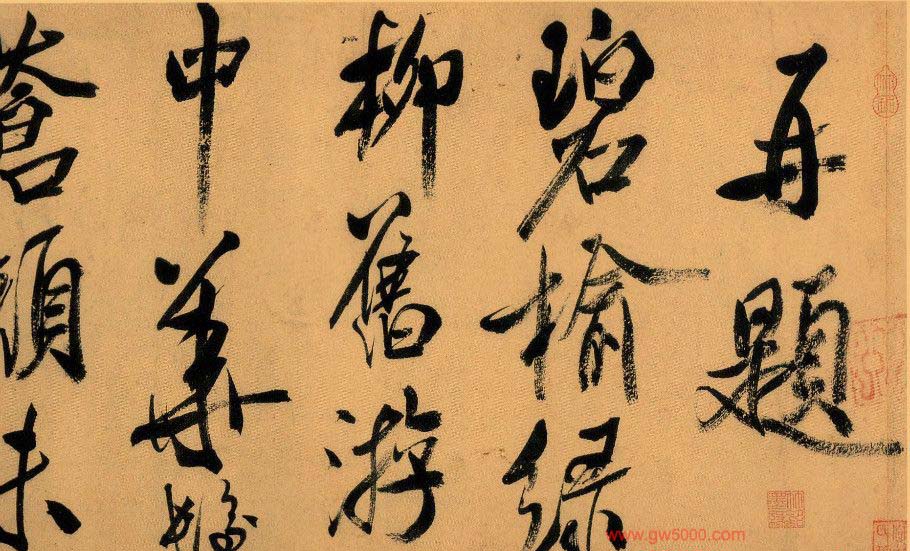 再題
碧榆綠
柳舊游
中華髮
蒼顏未
www.gw5000.com